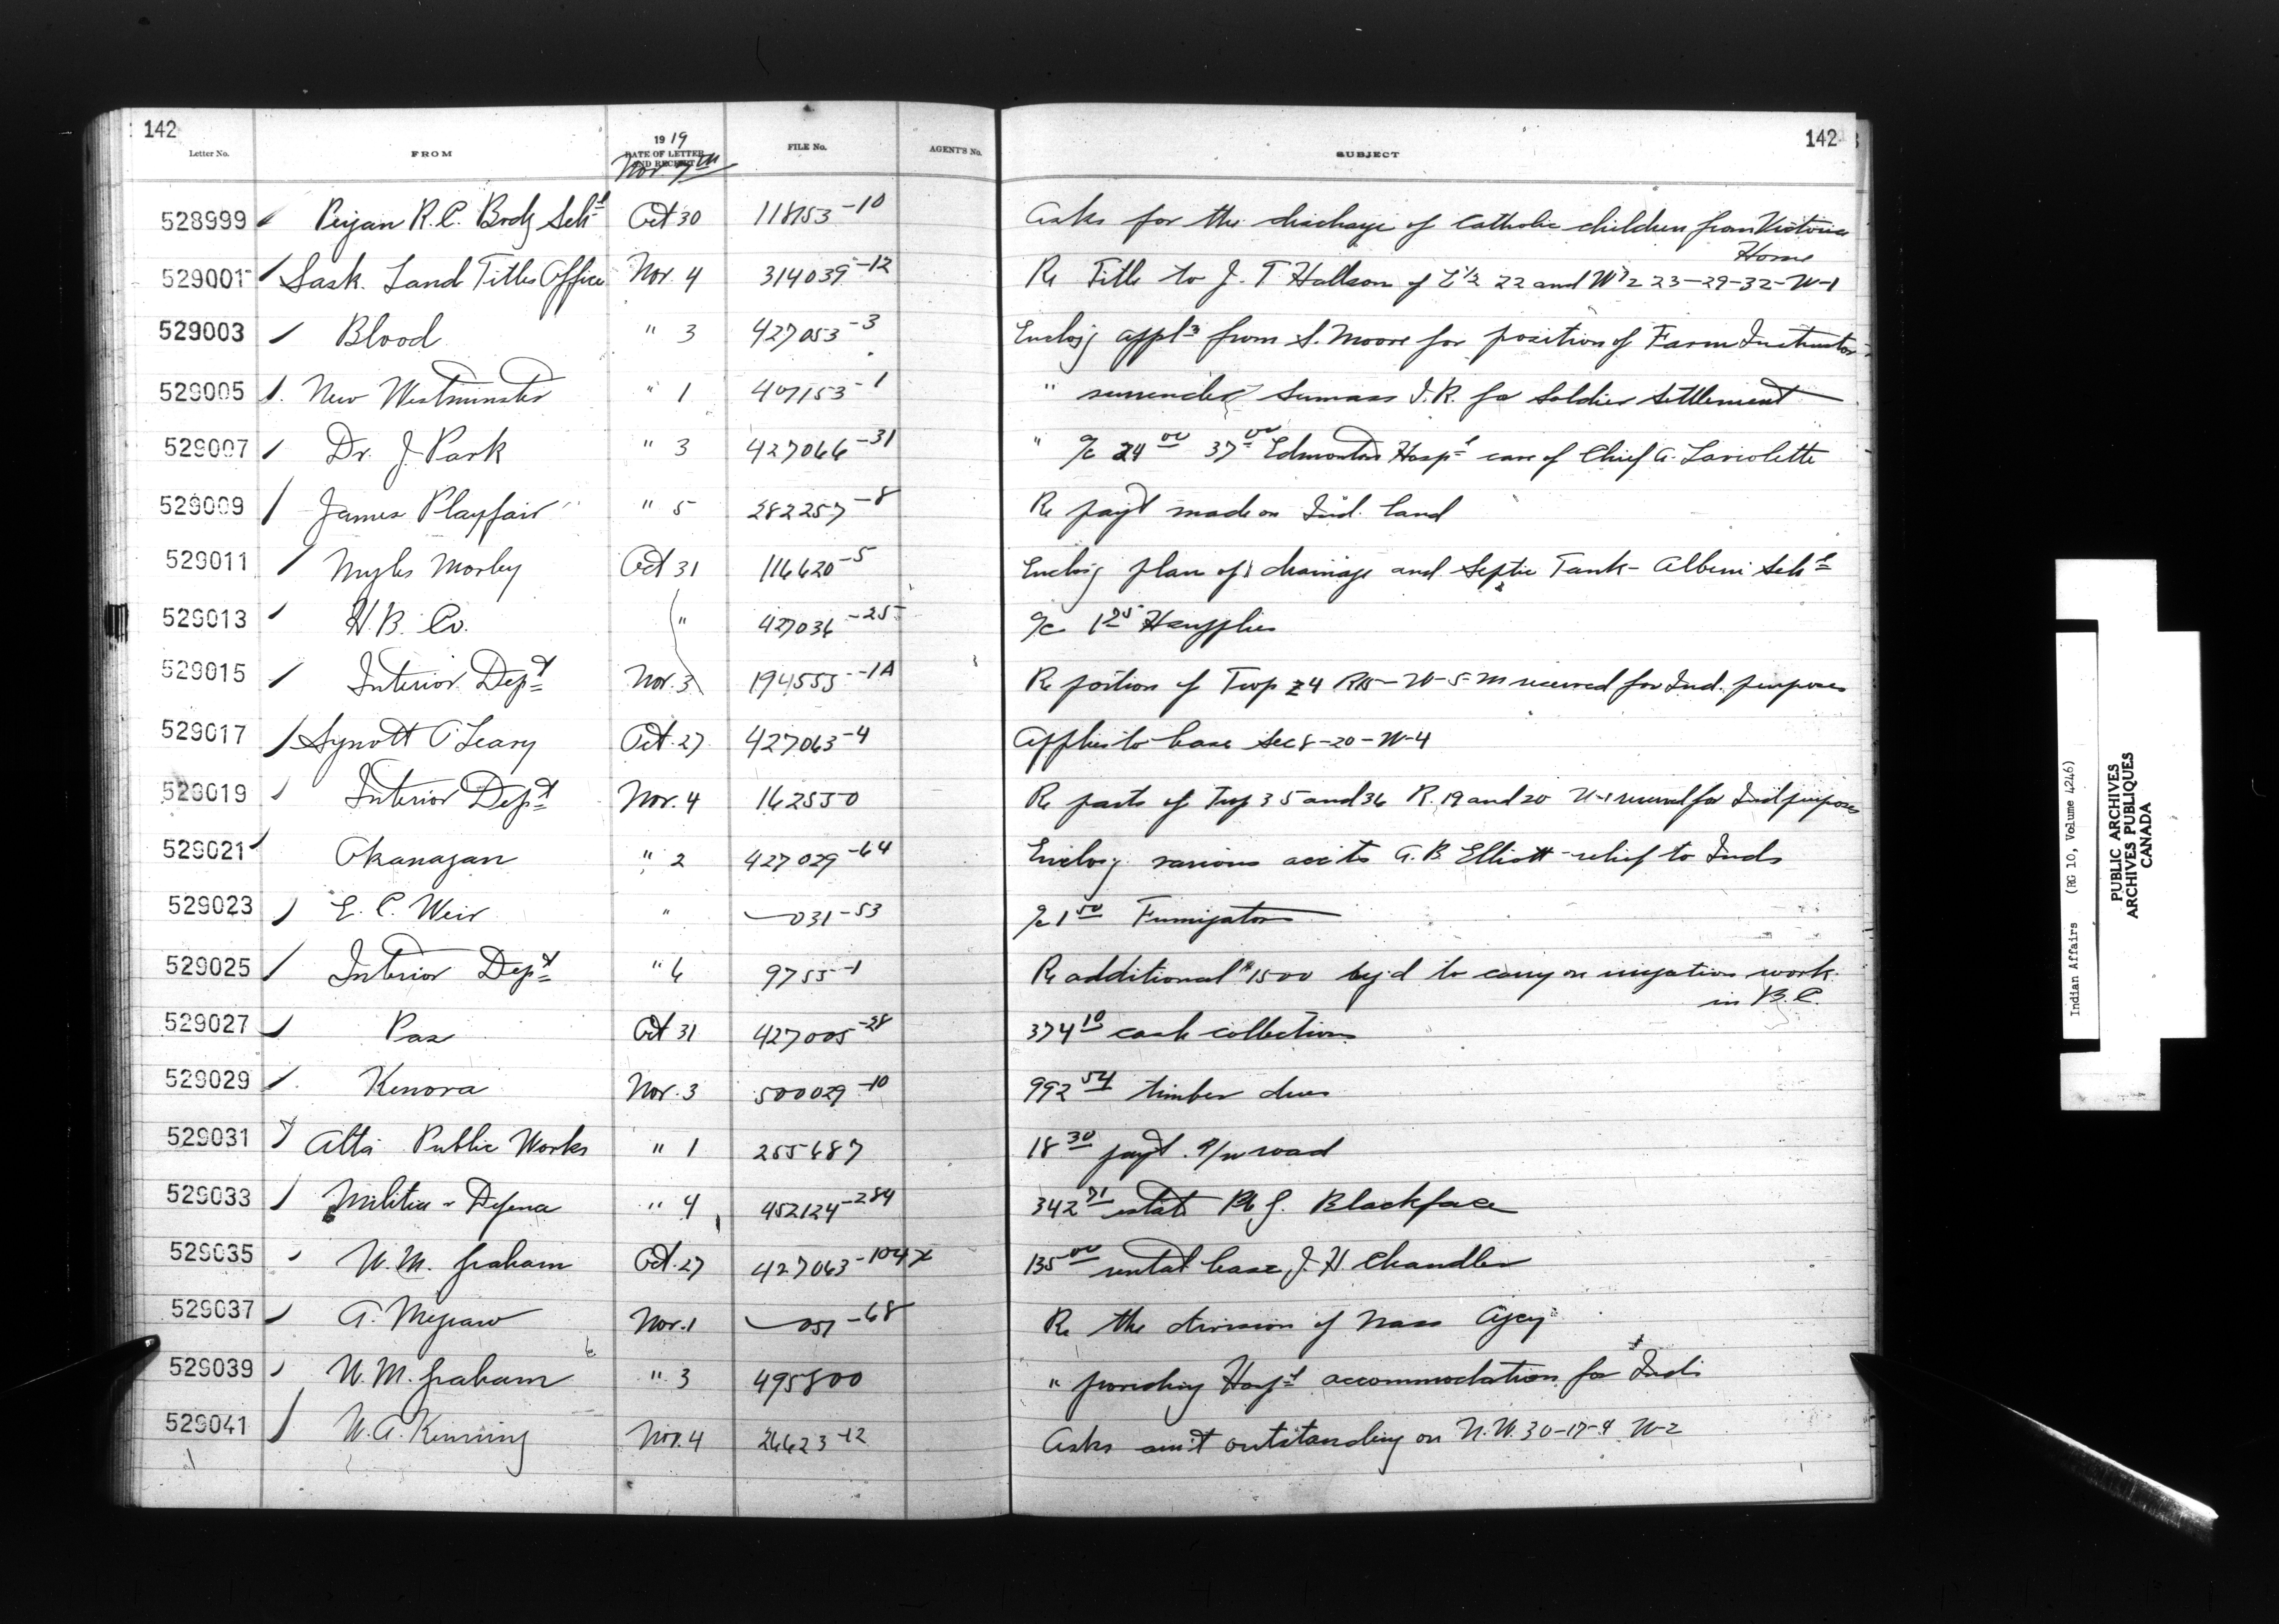 142
142
Letter No. FROM 1919 DATE OF LETTER AND RECEIPT FILE No. AGENT'S No. SUBJECT
Nov 7th
528999 Peigan R.C. Brdg Schl Oct 30 118153-10 Asks for the discharge of Catholic children from Victoria
Home
529001 Sask. Land Titles Office Nov. 4 314039-12 Re Title to J. T. of E 1/2 22 and W 1/2 23-29-32-W-1
529003 Blood " 3 427053-3 Enclosg appl from S. Moore for position of Farm Instructor
529005 New Westminster " 1 407153-1 " surrender Sumass I.R. for Soldier Settlement
529007 Dr. J. Park " 3 427066-31 " a/c 24 00 37 00 Edmonton Hospl care of Chief A. Laviolette
529009 James Playfair " 5 282257-8 Re payt made on Ind. land
529011 Myles Morley Oct 31 116620-5 Enclosg plan of drainage and Septic Tank - Alberni Schl
529013 H.B. Co. " 427036-25 a/c 1 25 supplies
529015 Interior Dept Nov. 3 194555-1A Re portion of Twp 24 R15-W-5-M reserved for Ind. purposes
529017 Synott O'Leary Oct. 27 427063-4 Applies to lease Sec 8-20-W-4
529019 Interior Dept Nov. 4 162550 Re parts of Twp 35 and 36 R. 19 and 20 W-1 reserved for Ind purposes
529021 Okanagan " 2 427029-64 Enclosg various accts A. B. Elliott - relief to Inds
529023 E. C. Weir " 031-53 a/c 1 50 Fumigators
529025 Interior Dept " 6 9755-1 Re additional $1500 to carry on irrigation work
in B.C.
529027 Pas Oct 31 427005-28 374 10 cash collections
529029 Kenora Nov. 3 500029-10 992 54 timber dues
529031 Alta Public Works " 1 255687 18 30 payt. r/w road
529033 Militia - Defence " 4 452124-284 342 71 estate Pte J. Blackface
529035 W. M. Graham Oct. 27 427063-104 x 135 00 rental lease J. H. Chandler
529037 A. Megraw Nov. 1 051-68 Re the division of Nass Agcy
529039 W. M. Graham " 3 495800 " providing Hospl accommodation for Inds
529041 W. A. Nov. 4 26623-12 Asks amt outstanding on N.W. 30-17-9 W-2
Indian Affairs (RG 10, Volume 4246)
PUBLIC ARCHIVES
ARCHIVES PUBLIQUES
CANADA